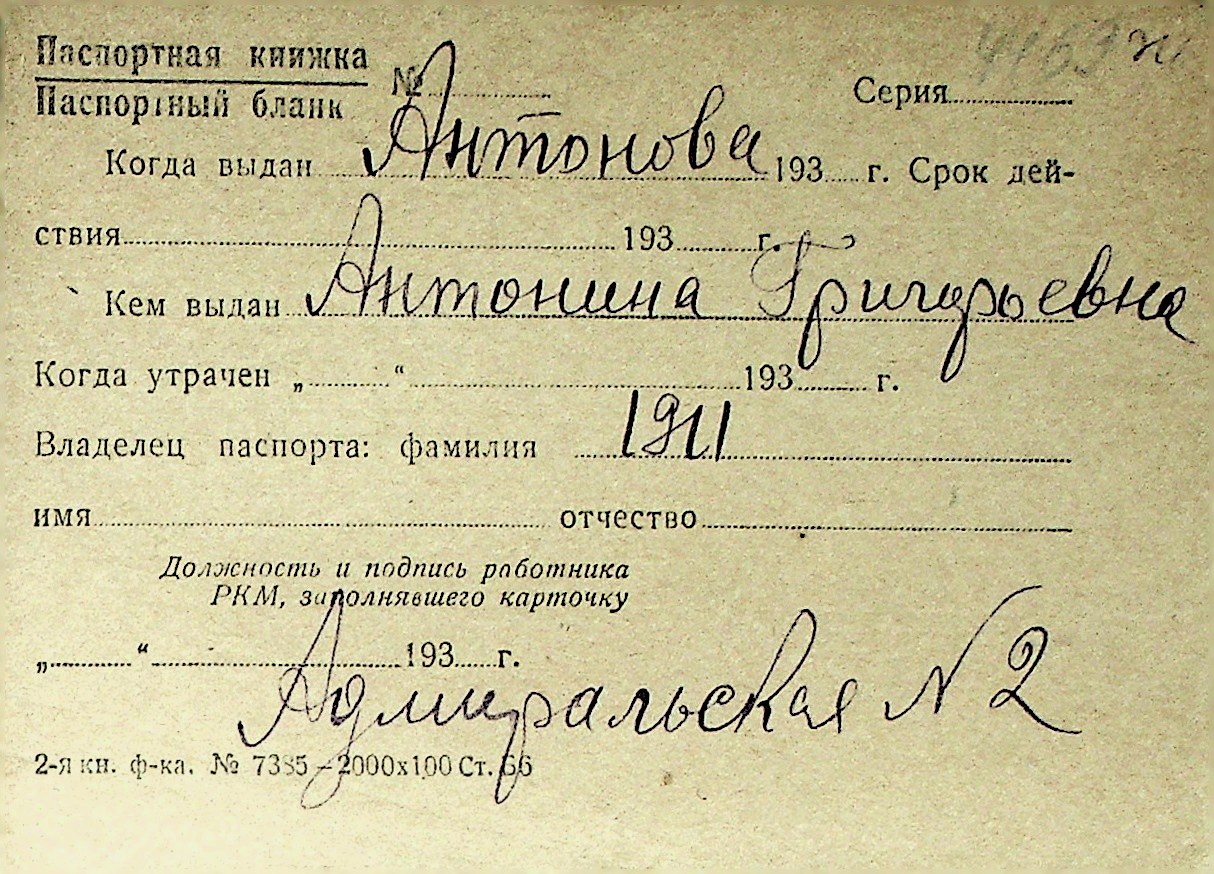 Паспортная книжка
Паспортный бланк
№ Серия
Когда выдан Антонова 193 г. Срок дей-
ствия 193 г.
Кем выдан Антонина Григорьевна
Когда утрачен „ “ 193 г.
Владелец паспорта: фамилия 1911
имя отчество
Должность и подпись работника
РКМ, заполнявшего карточку
„ “ 193 г.
Адмиральская N 2
2-я кн. ф-ка. № 7385–2000х100 Ст. 66